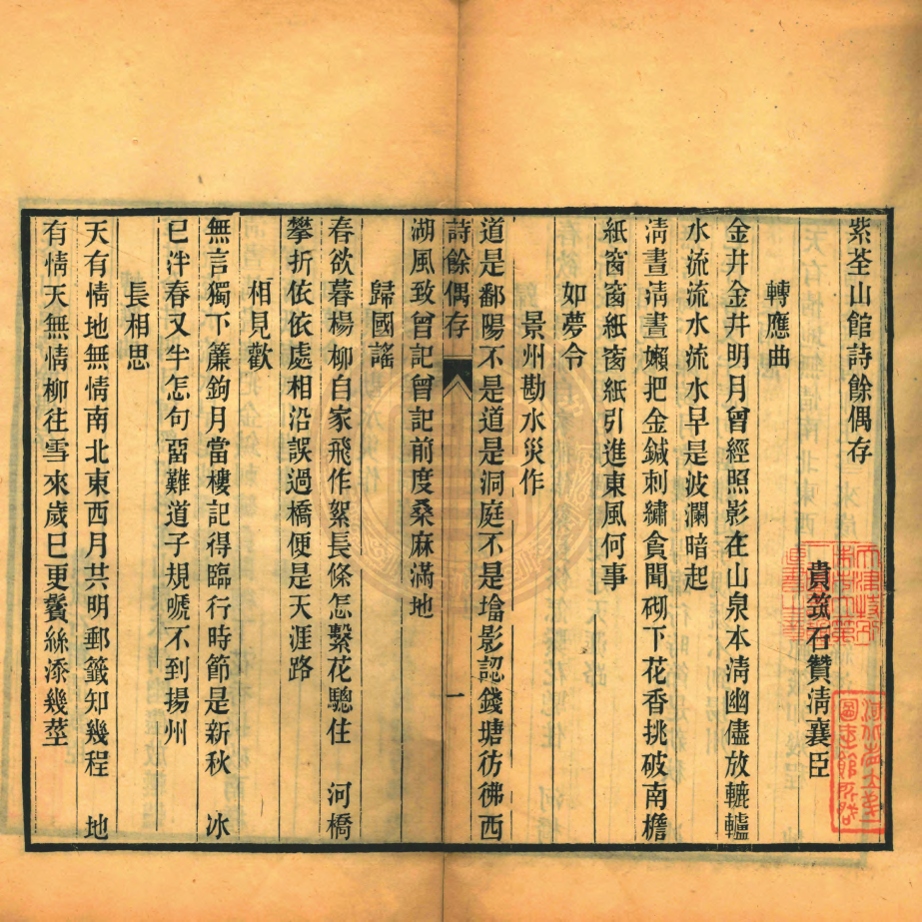 紫荃山館詩餘偶存
貴筑石贊淸襄臣
轉應曲
金井金井明月曾經照影在山泉本淸幽儘放轆轤
水流流水流水早是波瀾暗起
淸晝淸晝嬾把金鍼刺繡貪聞砌下花香挑破南檐
紙窗窗紙窗紙引進東風何事
如夢令
景州勘水災作
道是鄱陽不是道是洞庭不是墖影認錢塘彷彿西
詩餘偶存
一
湖風致曾記曾記前度桑麻滿地
歸國謠
春欲暮楊柳自家飛作絮長條怎繫花驄住 河橋
攀折依依處相沿誤過橋便是天涯路
相見歡
無言獨下簾鉤月當樓記得臨行時節是新秋 冰
已泮春又半怎句留難道子規嗁不到揚州
長相思
天有情地無情南北東西月共明郵籤知幾程 地
有情天無情柳往雪來歲已更鬢絲添幾莖